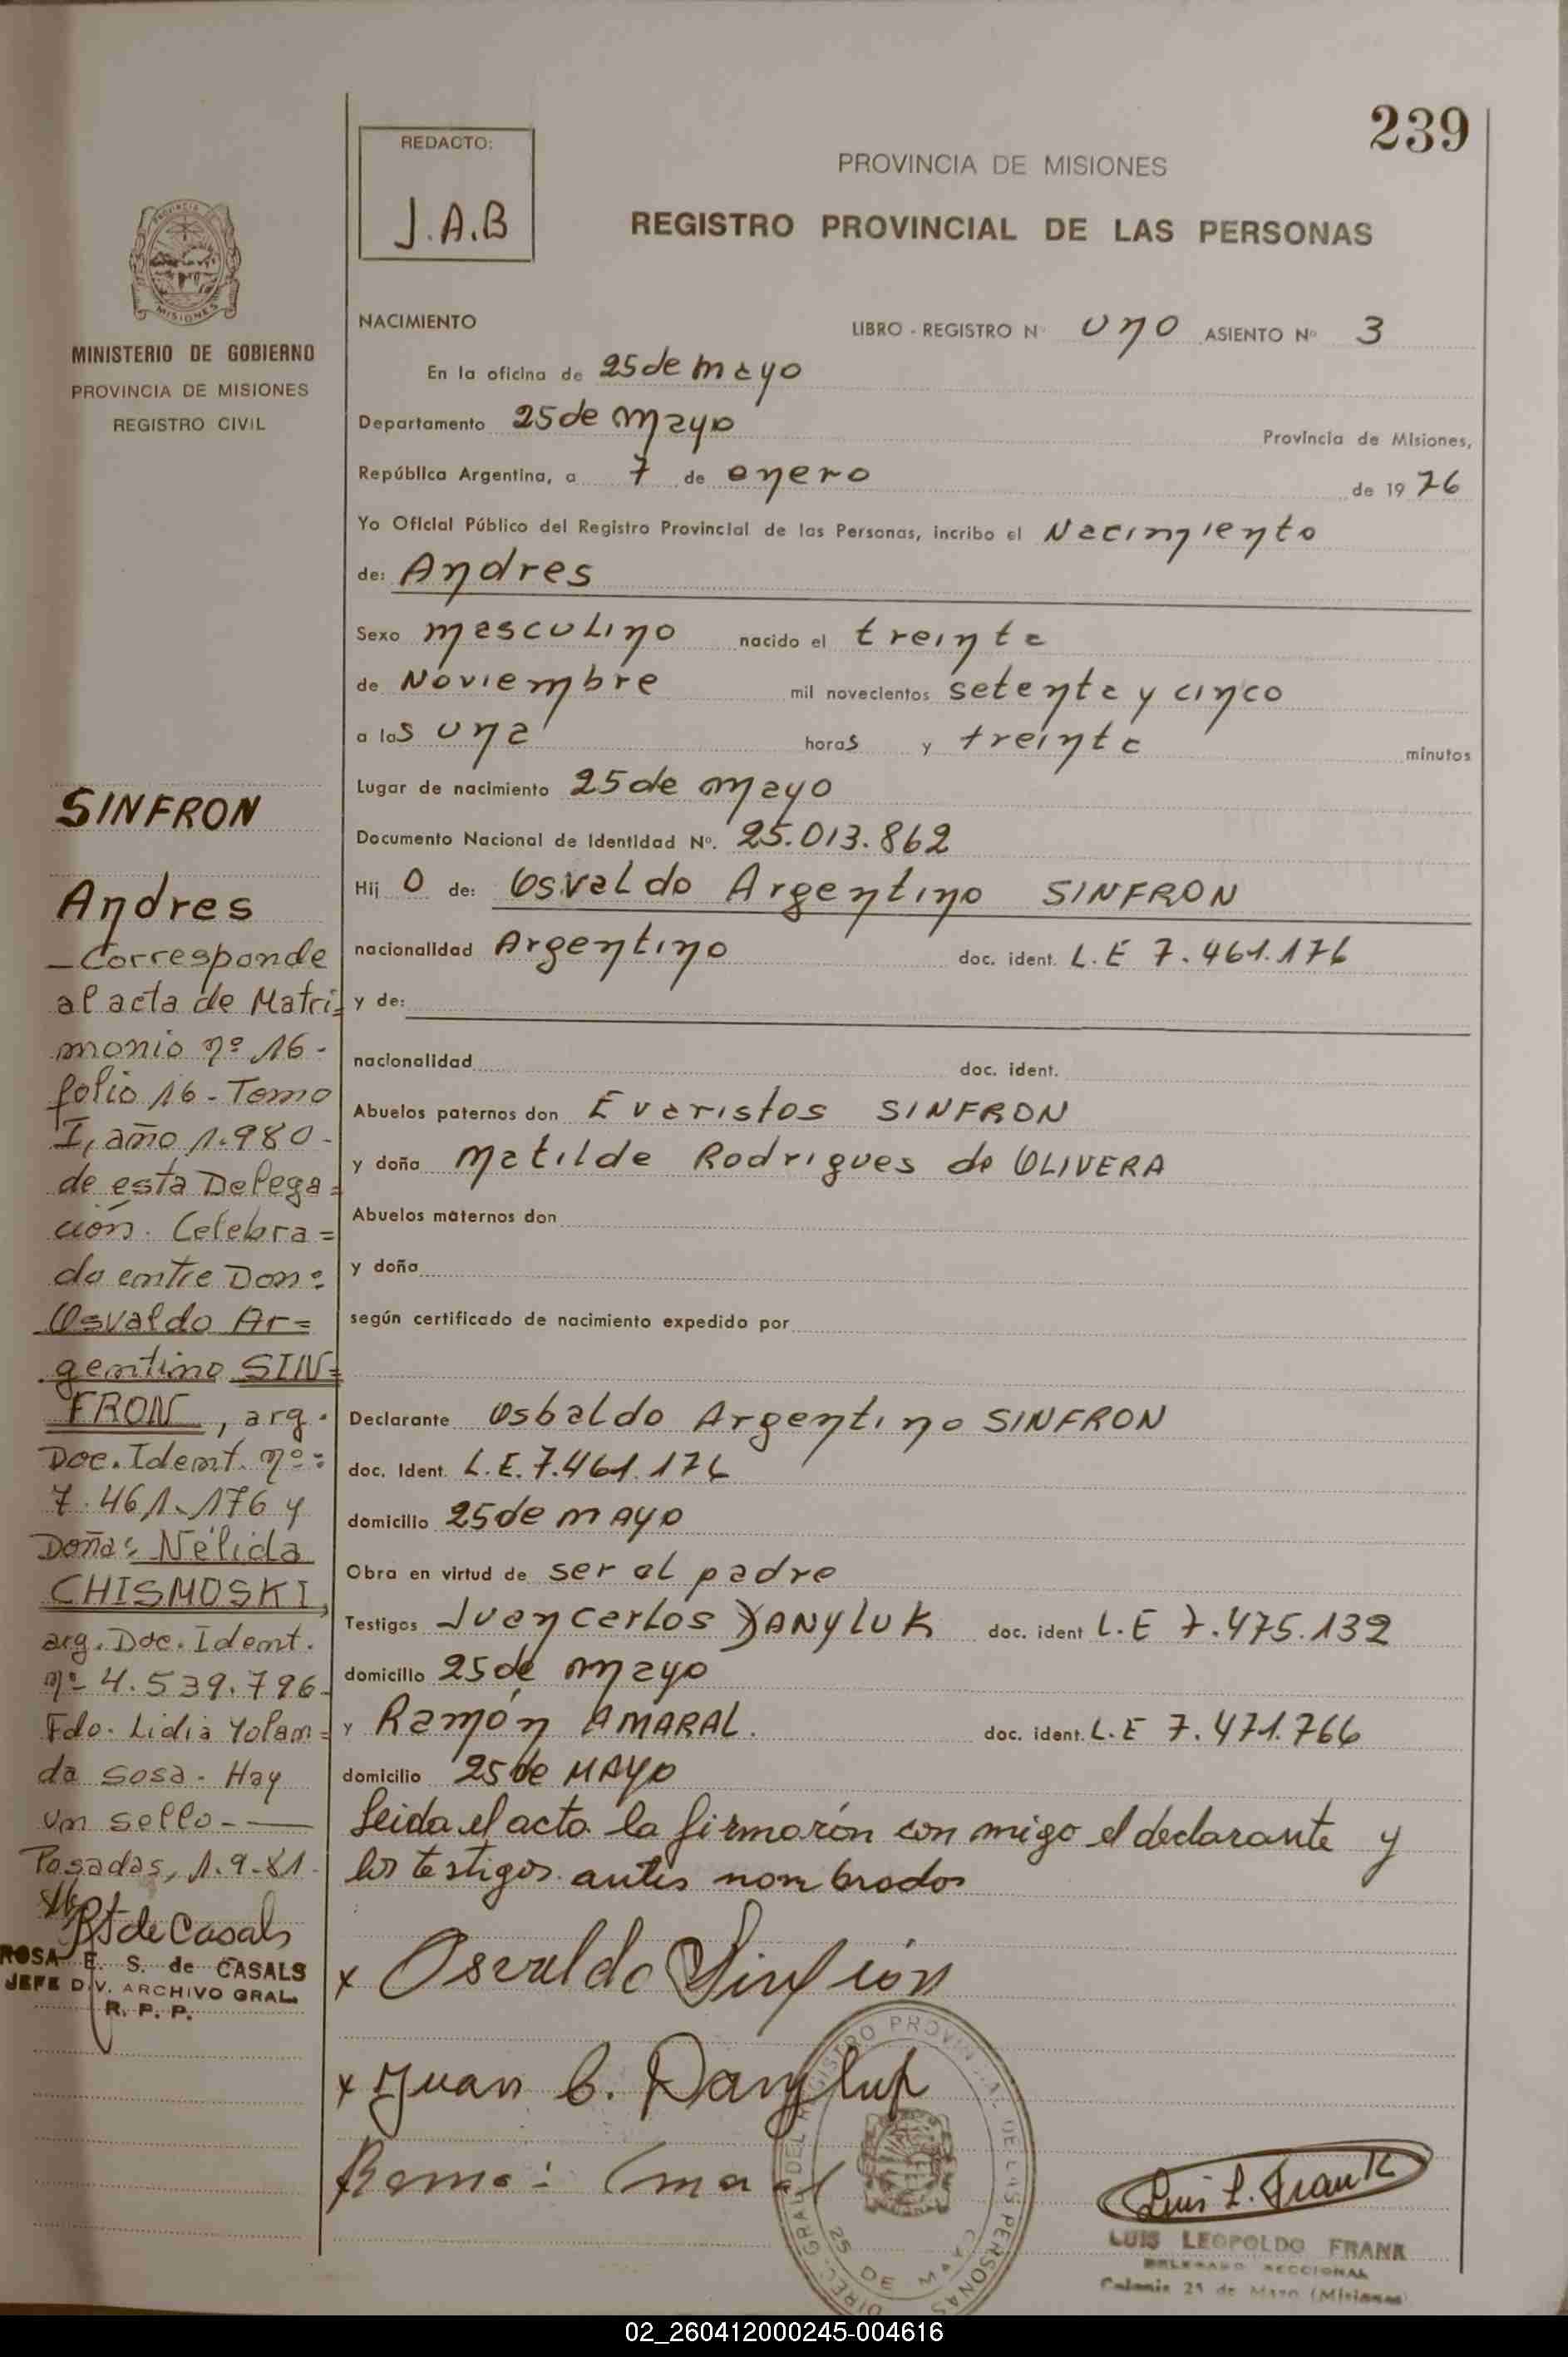 239
REDACTO:
J.A.B
PROVINCIA DE MISIONES
REGISTRO PROVINCIAL DE LAS PERSONAS
MINISTERIO DE GOBIERNO
PROVINCIA DE MISIONES
REGISTRO CIVIL
NACIMIENTO
LIBRO - REGISTRO Nº uno ASIENTO Nº 3
En la oficina de 25 de mayo
Departamento 25 de mayo Provincia de Misiones,
República Argentina, a 7 de enero de 1976
Yo Oficial Público del Registro Provincial de las Personas, incribo el Nacimiento
de: Andres
Sexo masculino nacido el treinta
de Noviembre mil novecientos setenta y cinco
a las una horas y treinta minutos
Lugar de nacimiento 25 de mayo
Documento Nacional de Identidad Nº. 25.013.862
Hijo de: Osvaldo Argentino SINFRON
nacionalidad Argentino doc. ident. L.E 7.461.176
y de:
nacionalidad doc. ident.
Abuelos paternos don Evaristos SINFRON
y doña Matilde Rodrigues de OLIVERA
Abuelos maternos don
y doña
según certificado de nacimiento expedido por
Declarante Osbaldo Argentino SINFRON
doc. Ident. L.E. 7.461.176
domicilio 25 de MAYO
Obra en virtud de ser el padre
Testigos Juan Carlos DANYLUK doc. ident L.E 7.475.132
domicilio 25 de mayo
y Ramón AMARAL. doc. ident. L.E 7.471.766
domicilio 25 de MAYO
Leida el acta la firmarón con migo el declarante y
los testigos antes nombrados
x Osvaldo Sinfrón
x Juan C. Danyluk
LUIS L. Frank
LUIS LEOPOLDO FRANK
DELEGADO SECCIONAL
Colonia 25 de Mayo (Misiones)
25 DE MAYO
SINFRON
Andres
_ Corresponde
al acta de Matri=
monio nº 16 -
folio 16 - Tomo
I, año 1.980 -
de esta Delega=
ción. Celebra=
do entre Don:
Osvaldo Ar=
gentino SIN=
FRON, arg.
Doc. Ident. nº:
7.461.176 y
Doña: Nélida
CHISMOSKI,
arg. Doc. Ident.
nº 4.539.796-
Fdo. Lidia Yolan=
da Sosa - Hay
un sello -
Posadas, 1.9.81-
RS de Casals
ROSA E. S. de CASALS
JEFE DIV. ARCHIVO GRAL.
R. P. P.
02_260412000245-004616